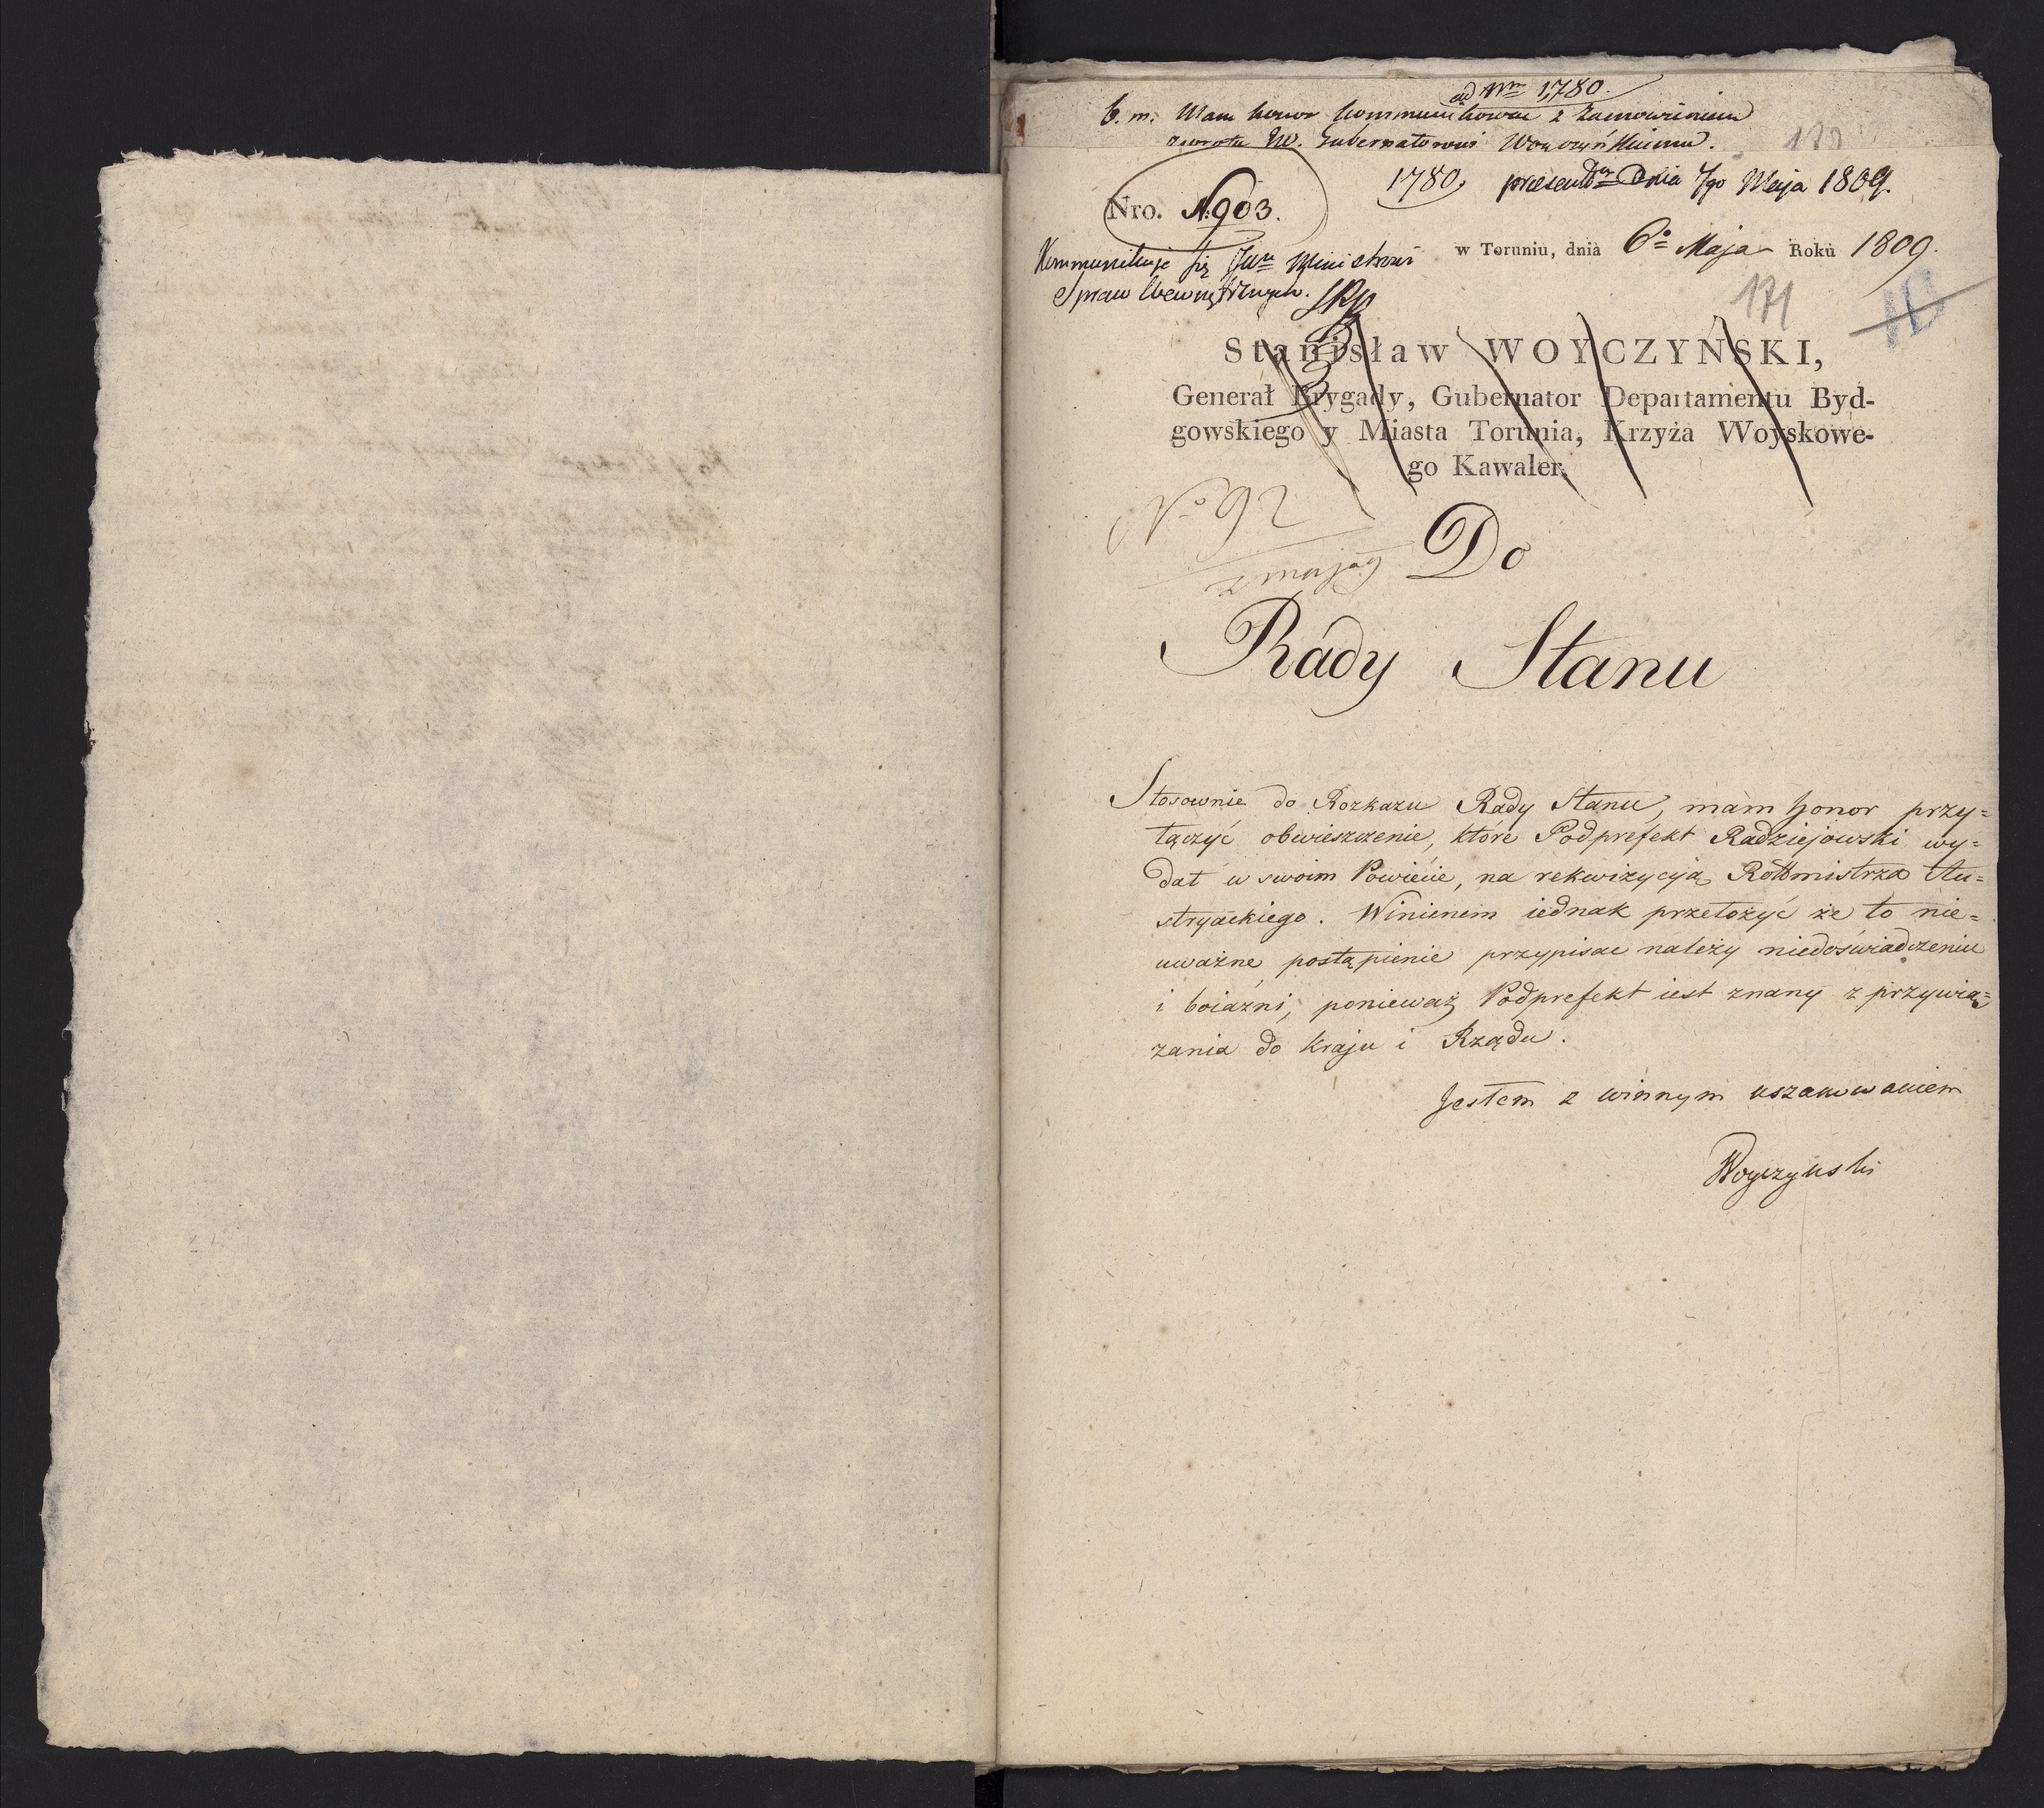 ad Nrm 1780.
b. m. Mam honor kommunikować z zamówieniem
zwrotu W. Gubernatorowi Woyczyńskiemu.
1780, praesentm Dnia 7go Maja 1809.
Nro. N. 903.
w Toruniu, dnia 6o Maja Roku 1809.
Kommunikuje się JWu Ministrowi
Spraw Wewnętrznych.
171
Stanisław WOYCZYŃSKI,
Generał Brygady, Gubernator Departamentu Byd-
gowskiego y Miasta Torunia, Krzyża Woyskowe-
go Kawaler.
No 92
Do
Rady Stanu
Stosownie do Rozkazu Rady Stanu, mam honor przy=
łączyć obwieszczenie, które Podprefekt Radziejowski wy=
dał w swoim Powiecie, na rekwizycyją Rottmistrza Au=
stryackiego. Winienem iednak przełożyć że to nie=
uważne postąpienie przypisac należy niedoświadczeniu
i boiaźni, ponieważ Podprefekt iest znany z przywią=
zania do kraju i Rządu.
Jestem z winnym uszanowaniem
Woyczyński